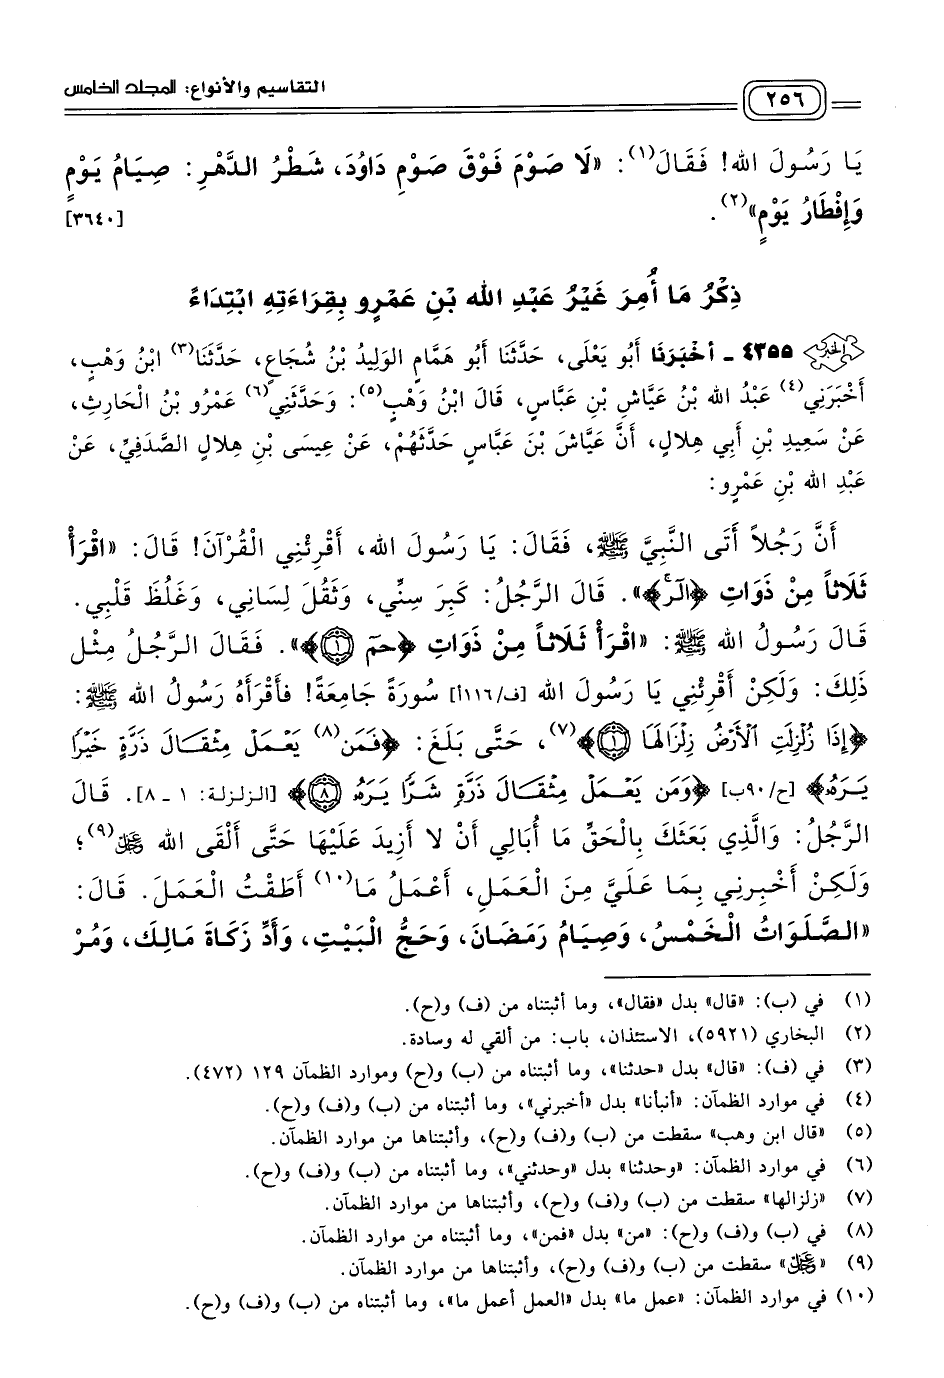 ٢٥٦ التقاسيم والأنواع: المجلد الخامس
يَا رَسُولَ الله! فَقَالَ(١): «لَا صَوْمَ فَوْقَ صَوْمِ دَاوُدَ، شَطْرُ الدَّهْرِ: صِيَامُ يَوْمٍ
وَإِفْطَارُ يَوْمٍ»(٢). [٣٦٤٠]
ذِكْرُ مَا أُمِرَ غَيْرُ عَبْدِ الله بْنِ عَمْرٍو بِقِرَاءَتِهِ ابْتِدَاءً
٤٣٥٥ - أَخْبَرَنَا أَبُو يَعْلَى، حَدَّثَنَا أَبُو هَمَّامٍ الوَلِيدُ بْنُ شُجَاعٍ، حَدَّثَنَا(٣) ابْنُ وَهْبٍ،
أَخْبَرَنِي(٤) عَبْدُ الله بْنُ عَيَّاشِ بْنِ عَبَّاسٍ، قَالَ ابْنُ وَهْبٍ(٥): وَحَدَّثَنِي(٦) عَمْرُو بْنُ الْحَارِثِ،
عَنْ سَعِيدِ بْنِ أَبِي هِلالٍ، أَنَّ عَيَّاشَ بْنَ عَبَّاسٍ حَدَّثَهُمْ، عَنْ عِيسَى بْنِ هِلالٍ الصَّدَفِيِّ، عَنْ
عَبْدِ الله بْنِ عَمْرٍو:
أَنَّ رَجُلاً أَتَى النَّبِيَّ ﷺ، فَقَالَ: يَا رَسُولَ الله، أَقْرِئْنِي الْقُرْآنَ! قَالَ: «اقْرَأْ
ثَلَاثاً مِنْ ذَوَاتِ ﴿الٓر﴾». قَالَ الرَّجُلُ: كَبِرَ سِنِّي، وَثَقُلَ لِسَانِي، وَغَلُظَ قَلْبِي.
قَالَ رَسُولُ الله ﷺ: «اقْرَأْ ثَلَاثاً مِنْ ذَوَاتِ ﴿حمٓ ١﴾». فَقَالَ الرَّجُلُ مِثْلَ
ذَلِكَ: وَلَكِنْ أَقْرِئْنِي يَا رَسُولَ الله [ف/١١٦أ] سُورَةً جَامِعَةً! فَأَقْرَأَهُ رَسُولُ الله ﷺ:
﴿إِذَا زُلْزِلَتِ الْأَرْضُ زِلْزَالَهَا ١﴾(٧)، حَتَّى بَلَغَ: ﴿فَمَن(٨) يَعْمَلْ مِثْقَالَ ذَرَّةٍ خَيْرًا
يَرَهُ﴾ [ح/٩٠ب] ﴿وَمَن يَعْمَلْ مِثْقَالَ ذَرَّةٍ شَرًّا يَرَهُ ٨﴾ [الزلزلة: ١ - ٨]. قَالَ
الرَّجُلُ: وَالَّذِي بَعَثَكَ بِالْحَقِّ مَا أُبَالِي أَنْ لا أَزِيدَ عَلَيْهَا حَتَّى أَلْقَى الله ﷻ(٩)؛
وَلَكِنْ أَخْبِرْنِي بِمَا عَلَيَّ مِنَ الْعَمَلِ، أَعْمَلُ مَا(١٠) أَطَقْتُ الْعَمَلَ. قَالَ:
«الصَّلَوَاتُ الْخَمْسُ، وَصِيَامُ رَمَضَانَ، وَحَجُّ الْبَيْتِ، وَأَدِّ زَكَاةَ مَالِكَ، وَمُرْ
(١) في (ب): «قال» بدل «فقال»، وما أثبتناه من (ف) و(ح).
(٢) البخاري (٥٩٢١)، الاستئذان، باب: من ألقي له وسادة.
(٣) في (ف): «قال» بدل «حدثنا»، وما أثبتناه من (ب) و(ح) وموارد الظمآن ١٢٩ (٤٧٢).
(٤) في موارد الظمآن: «أنبأنا» بدل «أخبرني»، وما أثبتناه من (ب) و(ف) و(ح).
(٥) «قال ابن وهب» سقطت من (ب) و(ف) و(ح)، وأثبتناها من موارد الظمآن.
(٦) في موارد الظمآن: «وحدثنا» بدل «وحدثني»، وما أثبتناه من (ب) و(ف) و(ح).
(٧) «زلزالها» سقطت من (ب) و(ف) و(ح)، وأثبتناها من موارد الظمآن.
(٨) في (ب) و(ف) و(ح): «من» بدل «فمن»، وما أثبتناه من موارد الظمآن.
(٩) «ﷻ» سقطت من (ب) و(ف) و(ح)، وأثبتناها من موارد الظمآن.
(١٠) في موارد الظمآن: «عمل ما» بدل «العمل أعمل ما»، وما أثبتناه من (ب) و(ف) و(ح).